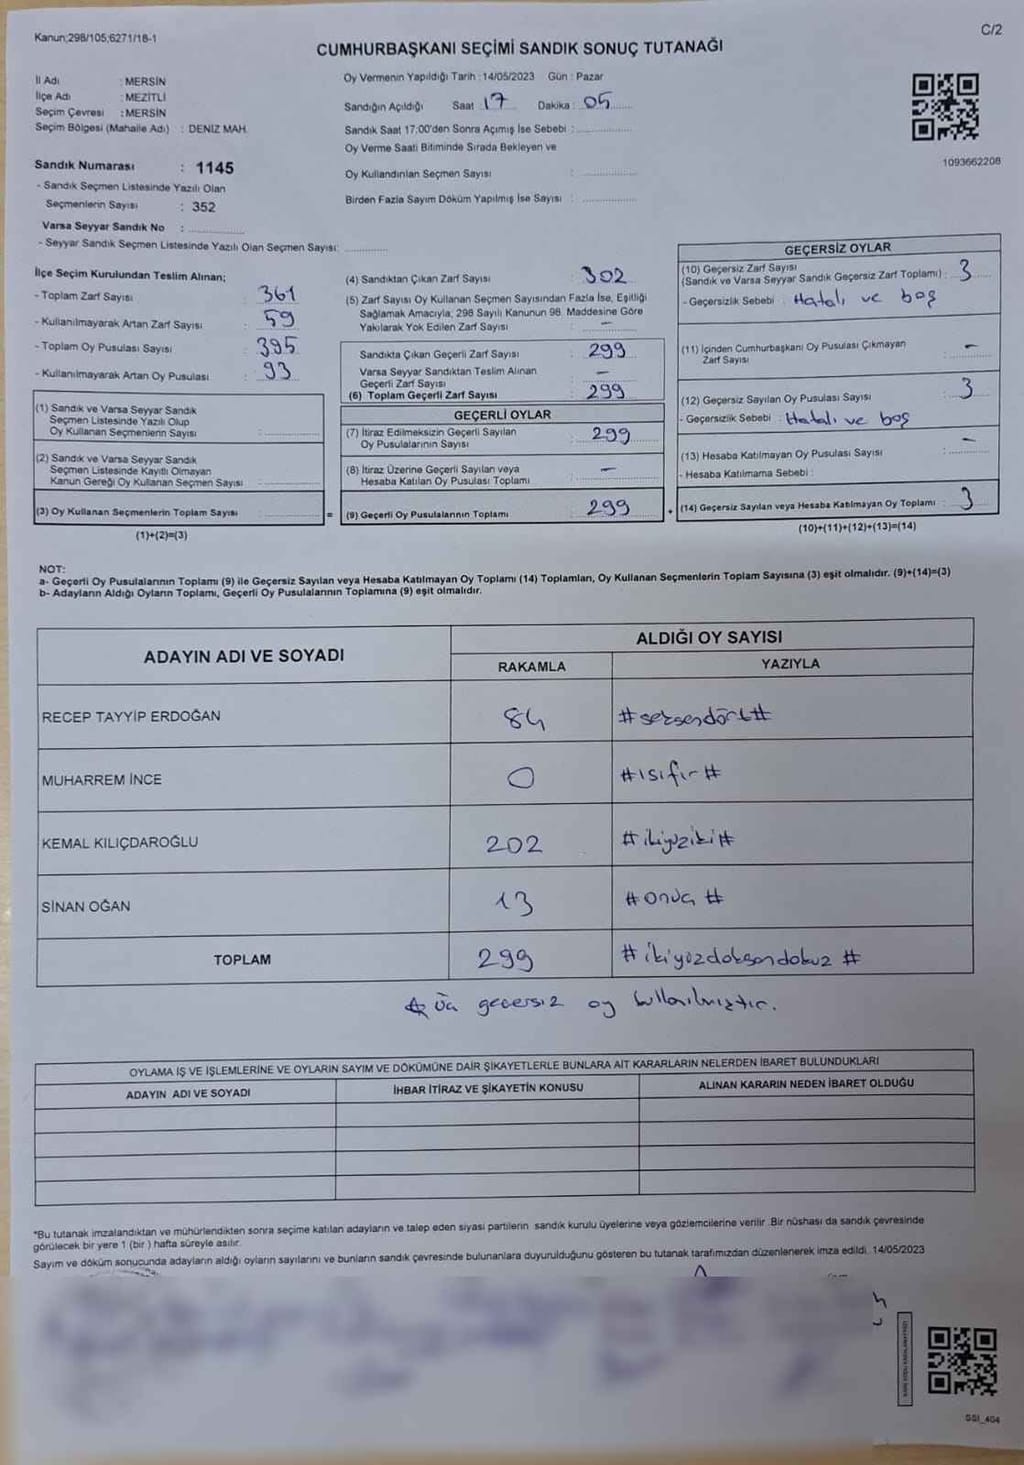 Kanun;298/105;6271/18-1
C/2
CUMHURBAŞKANI SEÇİMİ SANDIK SONUÇ TUTANAĞI
İl Adı : MERSİN
İlçe Adı : MEZİTLİ
Seçim Çevresi : MERSİN
Seçim Bölgesi (Mahalle Adı) : DENİZ MAH.
Oy Vermenin Yapıldığı Tarih : 14/05/2023 Gün : Pazar
Sandığın Açıldığı Saat 17 Dakika : 05
Sandık Saat 17:00'den Sonra Açımış İse Sebebi :
Oy Verme Saati Bitiminde Sırada Bekleyen ve
Oy Kullandırılan Seçmen Sayısı :
Birden Fazla Sayım Döküm Yapılmış İse Sayısı :
1093662208
Sandık Numarası : 1145
- Sandık Seçmen Listesinde Yazılı Olan
Seçmenlerin Sayısı : 352
Varsa Seyyar Sandık No :
- Seyyar Sandık Seçmen Listesinde Yazılı Olan Seçmen Sayısı:
İlçe Seçim Kurulundan Teslim Alınan;
- Toplam Zarf Sayısı : 361
- Kullanılmayarak Artan Zarf Sayısı : 59
- Toplam Oy Pusulası Sayısı : 395
- Kullanılmayarak Artan Oy Pusulası : 93
(1) Sandık ve Varsa Seyyar Sandık
Seçmen Listesinde Yazılı Olup
Oy Kullanan Seçmenlerin Sayısı :
(2) Sandık ve Varsa Seyyar Sandık
Seçmen Listesinde Kayıtlı Olmayan
Kanun Gereği Oy Kullanan Seçmen Sayısı :
(3) Oy Kullanan Seçmenlerin Toplam Sayısı : =
(1)+(2)=(3)
(4) Sandıktan Çıkan Zarf Sayısı : 302
(5) Zarf Sayısı Oy Kullanan Seçmen Sayısından Fazla İse, Eşitliği
Sağlamak Amacıyla, 298 Sayılı Kanunun 98. Maddesine Göre
Yakılarak Yok Edilen Zarf Sayısı : —
Sandıkta Çıkan Geçerli Zarf Sayısı : 299
Varsa Seyyar Sandıktan Teslim Alınan
Geçerli Zarf Sayısı : —
(6) Toplam Geçerli Zarf Sayısı : 299
GEÇERLİ OYLAR
(7) İtiraz Edilmeksizin Geçerli Sayılan
Oy Pusulalarının Sayısı : 299
(8) İtiraz Üzerine Geçerli Sayılan veya
Hesaba Katılan Oy Pusulası Toplamı : —
(9) Geçerli Oy Pusulalarının Toplamı : 299 +
GEÇERSİZ OYLAR
(10) Geçersiz Zarf Sayısı
(Sandık ve Varsa Seyyar Sandık Geçersiz Zarf Toplamı) : 3
- Geçersizlik Sebebi : Hatalı ve boş
(11) İçinden Cumhurbaşkanı Oy Pusulası Çıkmayan
Zarf Sayısı : -
(12) Geçersiz Sayılan Oy Pusulası Sayısı : 3
- Geçersizlik Sebebi : Hatalı ve boş
(13) Hesaba Katılmayan Oy Pusulası Sayısı : -
- Hesaba Katılmama Sebebi :
(14) Geçersiz Sayılan veya Hesaba Katılmayan Oy Toplamı : 3
(10)+(11)+(12)+(13)=(14)
NOT:
a- Geçerli Oy Pusulalarının Toplamı (9) ile Geçersiz Sayılan veya Hesaba Katılmayan Oy Toplamı (14) Toplamları, Oy Kullanan Seçmenlerin Toplam Sayısına (3) eşit olmalıdır. (9)+(14)=(3)
b- Adayların Aldığı Oyların Toplamı, Geçerli Oy Pusulalarının Toplamına (9) eşit olmalıdır.
ADAYIN ADI VE SOYADI
ALDIĞI OY SAYISI
RAKAMLA YAZIYLA
RECEP TAYYİP ERDOĞAN 84 #seksendört#
MUHARREM İNCE 0 #sıfır#
KEMAL KILIÇDAROĞLU 202 #ikiyüziki#
SİNAN OĞAN 13 #onüç#
TOPLAM 299 #ikiyüzdoksandokuz#
* Üç geçersiz oy kullanılmıştır.
OYLAMA İŞ VE İŞLEMLERİNE VE OYLARIN SAYIM VE DÖKÜMÜNE DAİR ŞİKAYETLERLE BUNLARA AİT KARARLARIN NELERDEN İBARET BULUNDUKLARI
ADAYIN ADI VE SOYADI İHBAR İTİRAZ VE ŞİKAYETİN KONUSU ALINAN KARARIN NEDEN İBARET OLDUĞU
*Bu tutanak imzalandıktan ve mühürlendikten sonra seçime katılan adayların ve talep eden siyasi partilerin sandık kurulu üyelerine veya gözlemcilerine verilir. Bir nüshası da sandık çevresinde
görülecek bir yere 1 (bir) hafta süreyle asılır.
Sayım ve döküm sonucunda adayların aldığı oyların sayılarını ve bunların sandık çevresinde bulunanlara duyurulduğunu gösteren bu tutanak tarafımızdan düzenlenerek imza edildi. 14/05/2023
SSI_404